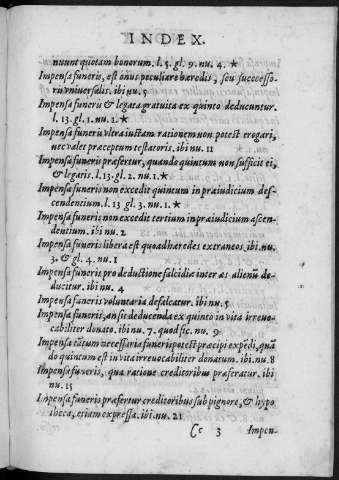 INDEX.
nuunt quotam bonorum. l. 5. gl. 9. nu. 4. ★
Impensa funeris, est onus peculiare haredis, seu successo-
ris vniuersalis. ibi nu. 5
Impensa funeris & legata gratuita ex quinto deducuntur.
l. 13. gl. 1. nu. 1. ★
Impensa funeris vltra iustam rationem non potest erogari,
nec valet præceptum testatoris. ibi nu. 11
Impensa funeris præfertur, quando quintum non sufficit ei,
& legatis. l. 13. gl. 2. nu. 1. ★
Impensa funeris non excedit quintum in præiudicium des-
cendentium. l. 13 gl. 3. nu. 1. ★
Impensa funeris non excedit tertium in præiudicium ascen-
dentium. ibi nu. 2
Impensa funeris libera est quoad haredes extraneos. ibi. nu.
3. & gl. 4. nu. 1
Impensa funeris pro deductione falcidiæ inter æs alienū de-
ducitur. ibi nu. 4
Impensa funeris voluntaria defalcatur. ibi nu. 5
Impensa funeris, an sit deducenda ex quinto in vita irreuo-
cabiliter donato. ibi nu. 7. quod sic. nu. 9
Impensa tātum necessaria funeris potest præcipi expēdi, quā
do quintum est in vita irreuocabiliter donatum. ibi nu. 8
Impensa funeris, qua ratione creditoribus præferatur. ibi
nu. 15
Impensa funeris præfertur creditoribus sub pignore, & hypo
theca, etiam expressa. ibi nu. 21
Cc 3 Impen-